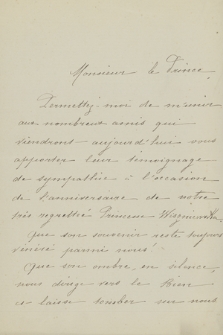 Monsieur le Prince
Permettez-moi de m'unir
aux nombreux amis qui
viendront aujourd'hui vous
apporter leur témoignage
de sympathie à l'occasion
de l'anniversaire de notre
très regretté Prince
que son souvenir reste toujours
vénéré parmi nous!
Que son ombre, en silence,
nous dirige vers le Bien
et laisse tomber sur nous